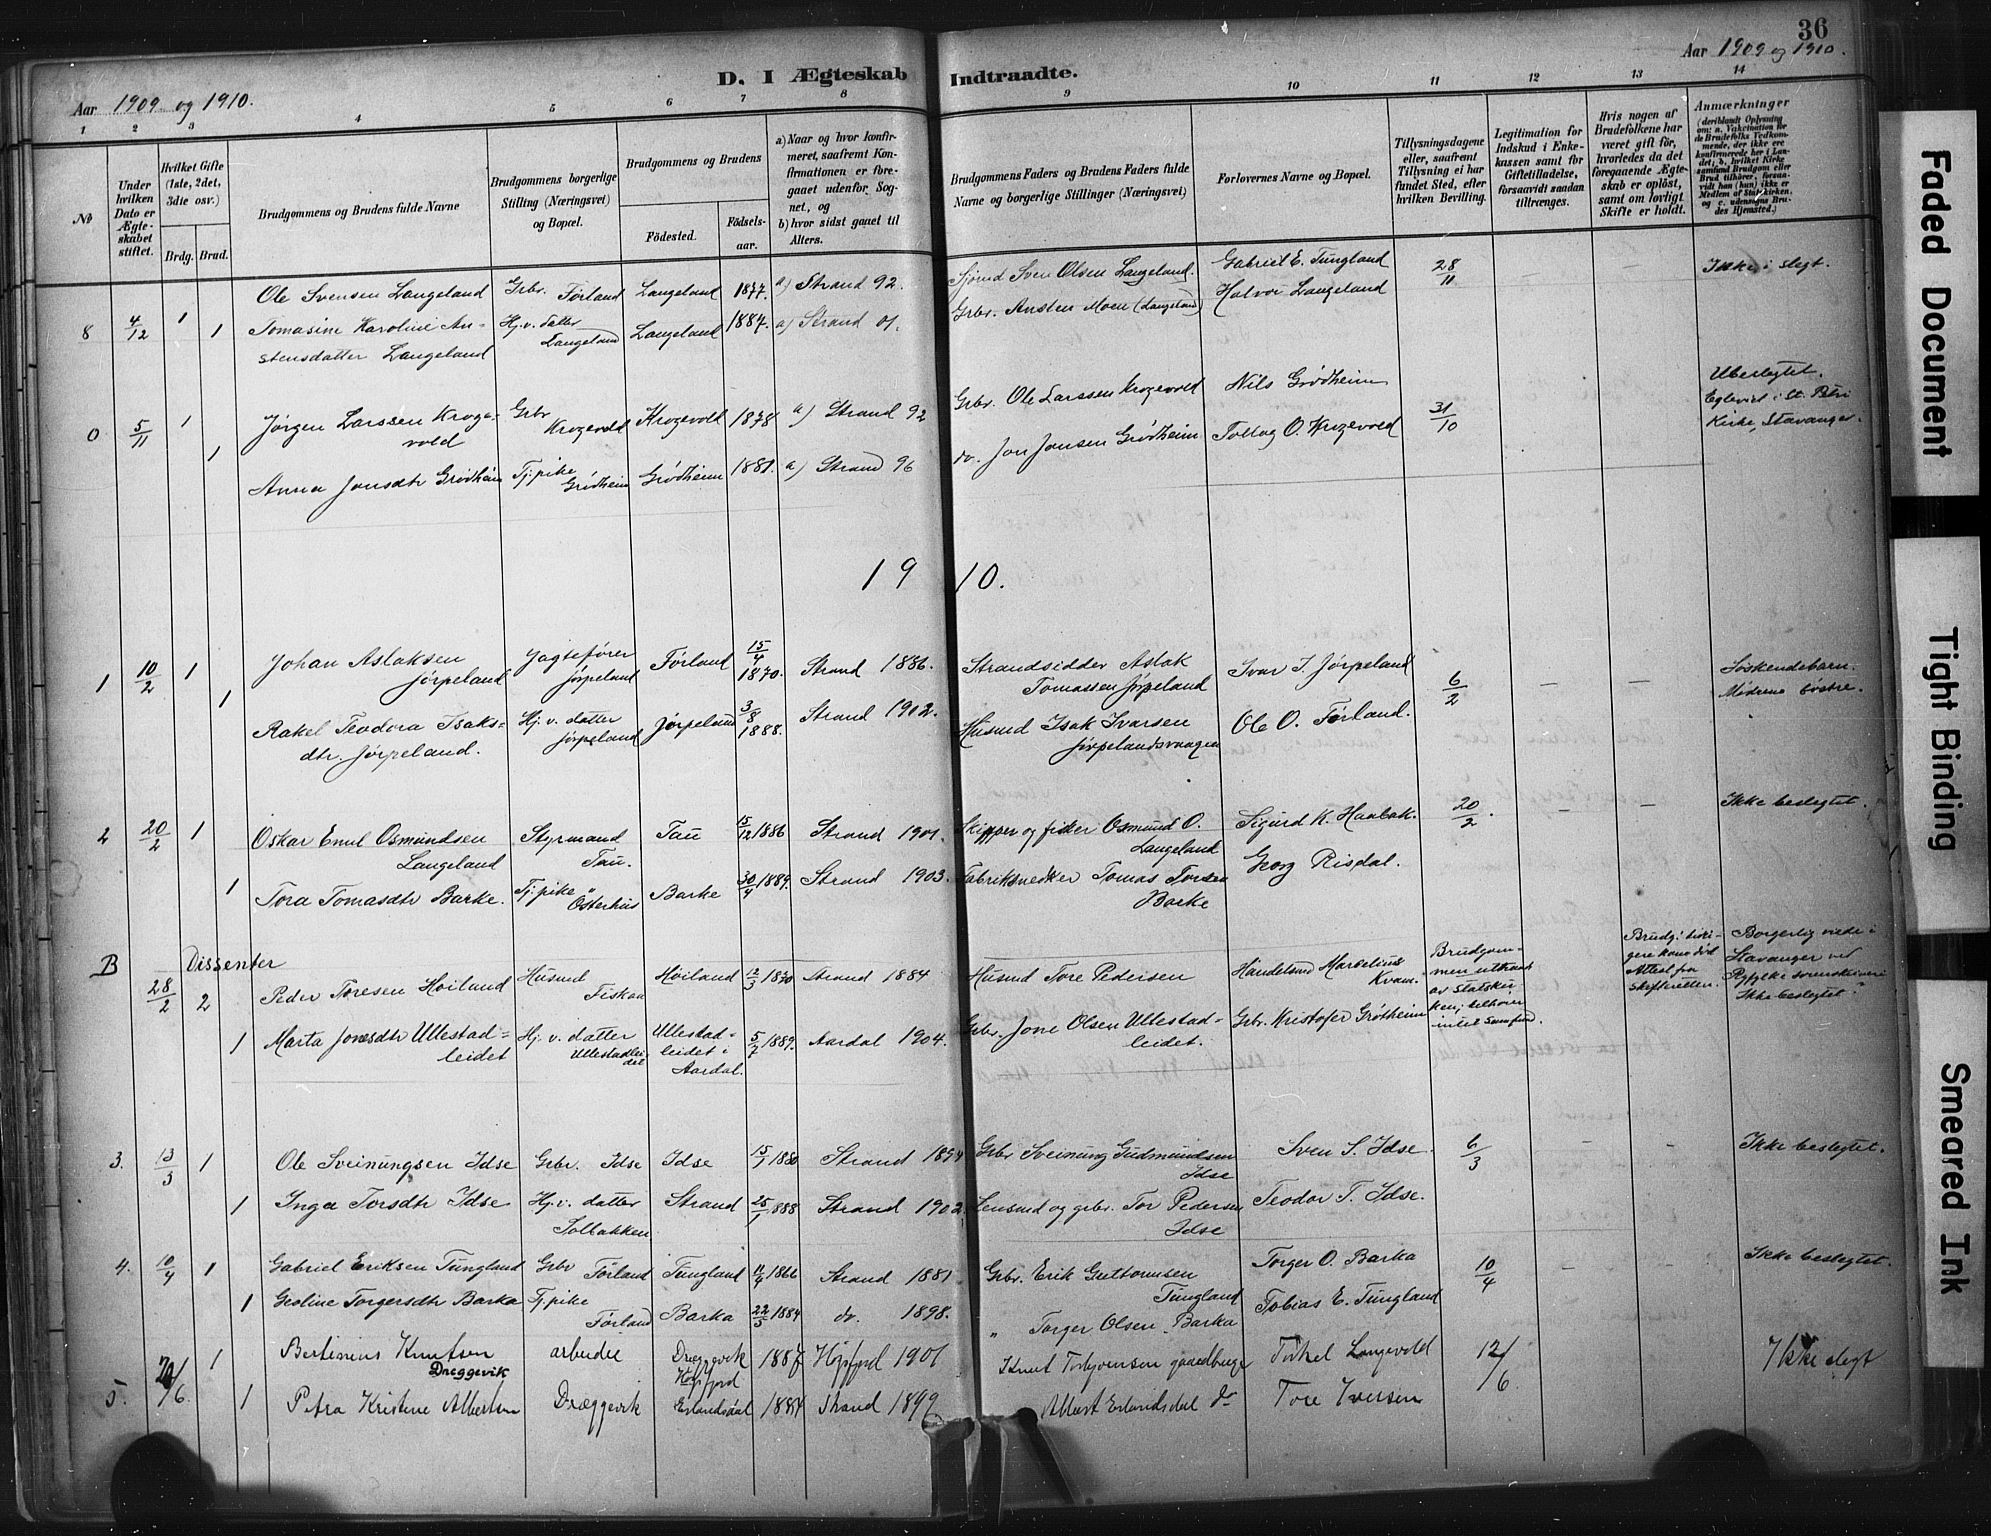 36
Aar 1909 og 1910.
D. I Ægteskab Indtraadte.
Aar 1909 og 1910.
1 2 3 4 5 6 7 8 9 10 11 12 13 14
No
Under hvilken Dato er Ægteskabet stiftet.
Hvilket Gifte (1ste, 2det, 3die osv.)
Brdg. Brud.
Brudgommens og Brudens fulde Navne
Brudgommens borgerlige Stilling (Næringsvei) og Bopæl.
Brudgommens og Brudens
Födested. Födsels-aar.
a) Naar og hvor konfirmeret, saafremt Konfirmationen er foregaaet udenfor Sognet, og
b) hvor sidst gaaet til Alters.
Brudgommens Faders og Brudens Faders fulde Navne og borgerlige Stillinger (Næringsvei)
Forlovernes Navne og Bopæl.
Tillysningsdagene eller, saafremt Tillysning ei har fundet Sted, efter hvilken Bevilling.
Legitimation for Indskud i Enkekassen samt for Giftetilladelse, forsaavidt saadan tiltrænges.
Hvis nogen af Brudefolkene har været gift før, hvorledes da det foregaaende Ægteskab er opløst, samt om lovligt Skifte er holdt.
Anmærkninger
(deriblandt Oplysning om: a. Vakcination for de Brudefolks Vedkommende, der ikke ere konfirmerede her i Landet; b. hvilket Kirkesamfund Brudgom eller Brud tilhører, forsaavidt han (hun) ikke er Medlem af Statskirken, og c. udensogns Brudes Hjemsted.)
8 4/12 1 Ole Svensen Langeland Grbr. Førland Langeland 1877. a) Strand 92. Sven Olsen Langeland. Gabriel E. Tungland 28/11 — — Ikke i slegt.
1 Tomasine Karoline Anstensdatter Langeland Hj.v. datter Langeland Langeland 1887. a) Strand 01. Grbr. Ansten Moen (Langeland) Halvor Langeland
0 5/11 1 Jørgen Larssen Krogevold Grbr Krogevold Krogevold 1878 a) Strand 92 Grbr. Ole Larssen Krogevold Nils Grødheim 31/10 Ubeslegtet. Egteviet i St. Petri Kirke, Stavanger.
1 Anna Jonsdtr Grødheim Tj.pike Grødheim Grødheim 1881. a) Strand 96 do. Jon Jonsen Grødheim Tollag O. Krogevold
1910.
1 10/2 1 Johan Aslaksen Jørpeland Jagtefører Jørpeland Førland 15/4 1870. Strand 1886. Strandsidder Aslak Tomassen Jørpeland Ivar I. Jørpeland 6/2 — — Søskendebarn. Mødrene søstre.
1 Rakel Teodora Isaksdtr. Jørpeland. Hj.v. datter Jørpeland Jørpeland 3/8 1888. Strand 1902. Husmd Isak Ivarsen Jørpelandsvaagen Ole O. Førland.
2 20/2 1 Oskar Emil Osmundsen Langeland Styrmand Tau. Tau 15/12 1886 Strand 1901. Skipper og fisker Osmund O. Langeland Sigurd K. Haabak. 20/2. — — Ikke beslegtet.
1 Tora Tomasdtr Barke. Tj.pike Østerhus Barke 30/4 1889. Strand 1903. Fabriksnedker Tomas Torsen Barke Georg Risdal.
B Dissenter
28/2 2 Peder Toresen Høiland Husmd Fiskaa Høiland 12/3 1870 Strand 1884 Husmd Tore Pedersen Handelsmd Marselius Kvam. Brudgommen uttraadt av Statskirken; tilhører intet samfund. Brudg. tidligere kone død Attest fra skifteretten. Borgerlig viede i Stavanger ved Ryfylke sorenskriveri Ikke beslegtet.
1 Marta Jonesdtr Ullestadleidet Hj.v. datter Ullestadleidet Ullestadleidet i Aardal. 5/7 1889. Aardal 1904. Grbr. Jone Olsen Ullestadleidet. Grbr. Kristofer Grøtheim
3. 13/3 1 Ole Sveinungsen Idse Grbr. Idse Idse 15/7 1880 Strand 1894 Grbr Sveinung Gudmundsen Idse Sven S. Idse. 6/3 — — Ikke beslegtet.
1 Inga Torsdtr Idse Hj.v. datter Solbakken Strand 25/1 1888 Strand 1902. Lensmd og grbr. Tor Pedersen Idse Teodor T. Idse.
4. 10/4 1 Gabriel Eriksen Tungland Grbr Førland Tungland 11/9 1866 Strand 1881. Grbr. Erik Guttormsen Tungland Torger O. Barka 10/4 — — Ikke beslegtet.
1 Gesline Torgersdtr Barka Tj.pike Førland Barka 22/3 1884 do. 1898. „ Torger Olsen Barka Tobias E. Tungland
5. 20/6 1 Bertinius Knutsen Dreggevik arbeider Dreggevik Høgsfjord 1887 Høgsfjord 1901 Knut Torbjørnsen gaardbruger Torkel Longevold 12/6. Ikke slegt
1 Petra Kristine Albertsen Dreggevik Erlandsdal 1884 Strand 1899 Albert Erlandsdal do Tore Iversen
Faded Document
Tight Binding
Smeared Ink